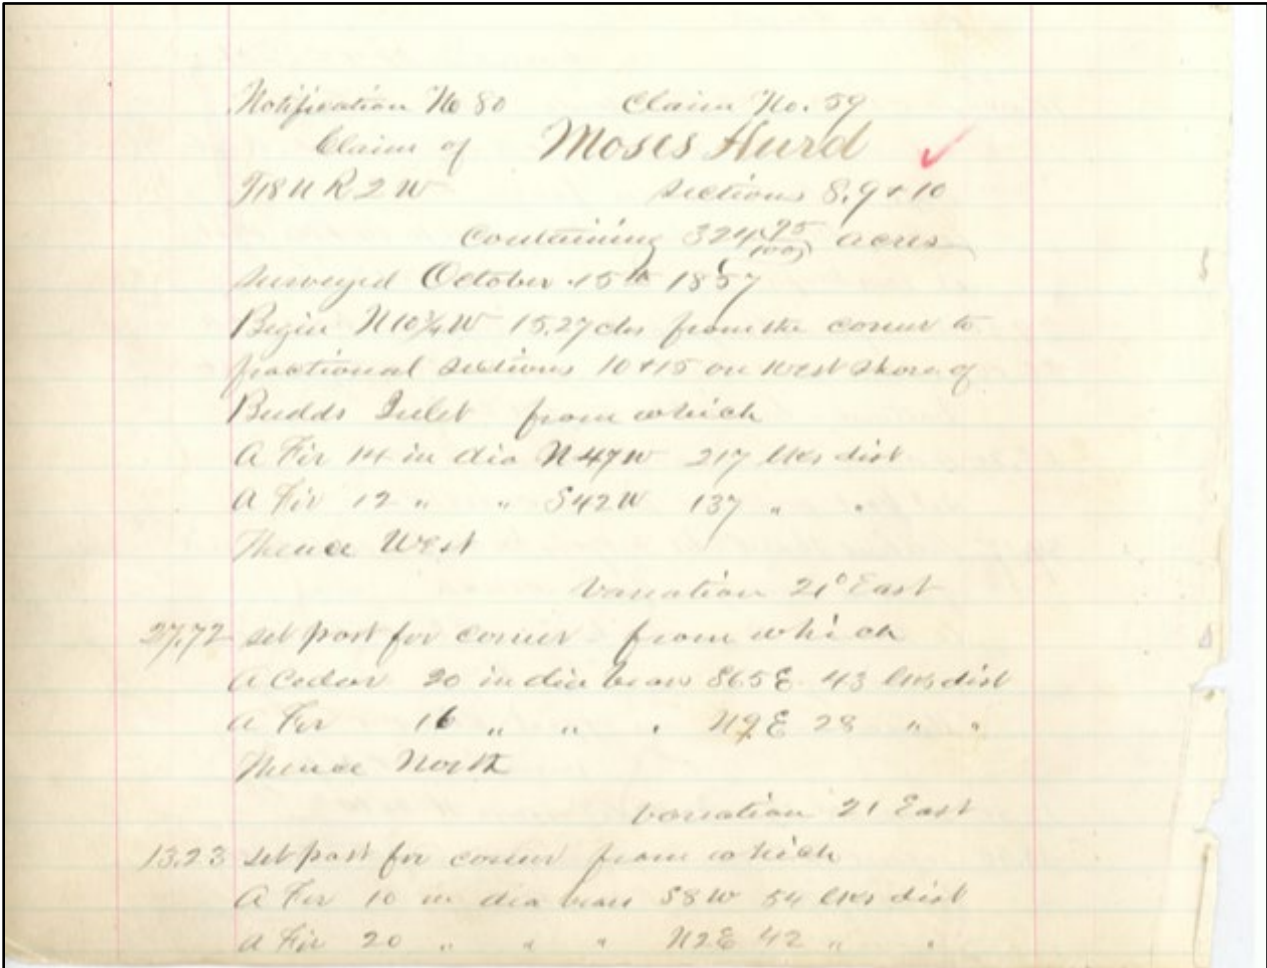 Notification No 80 Claim No. 59
Claim of Moses Hurd
T18 N R 2 W Sections 8, 9 & 10
Containing 324 95/100 acres
Surveyed October 15th 1857
Begin N10¾W 15.27 chs from the corner to
fractional sections 10 & 15 on West Shore of
Budds Inlet from which
A Fir 14 in dia N47W 217 lks dist
A Fir 12 " " S42W 137 " "
Thence West
Variation 21° East
27.72 set post for corner from which
A Cedar 20 in dia bears S65E 43 lks dist
A Fir 16 " " " N9E 28 " "
Thence North
Variation 21 East
13.23 set post for corner from which
A Fir 10 in dia bears S8W 54 lks dist
A Fir 20 " " " N2E 42 " "